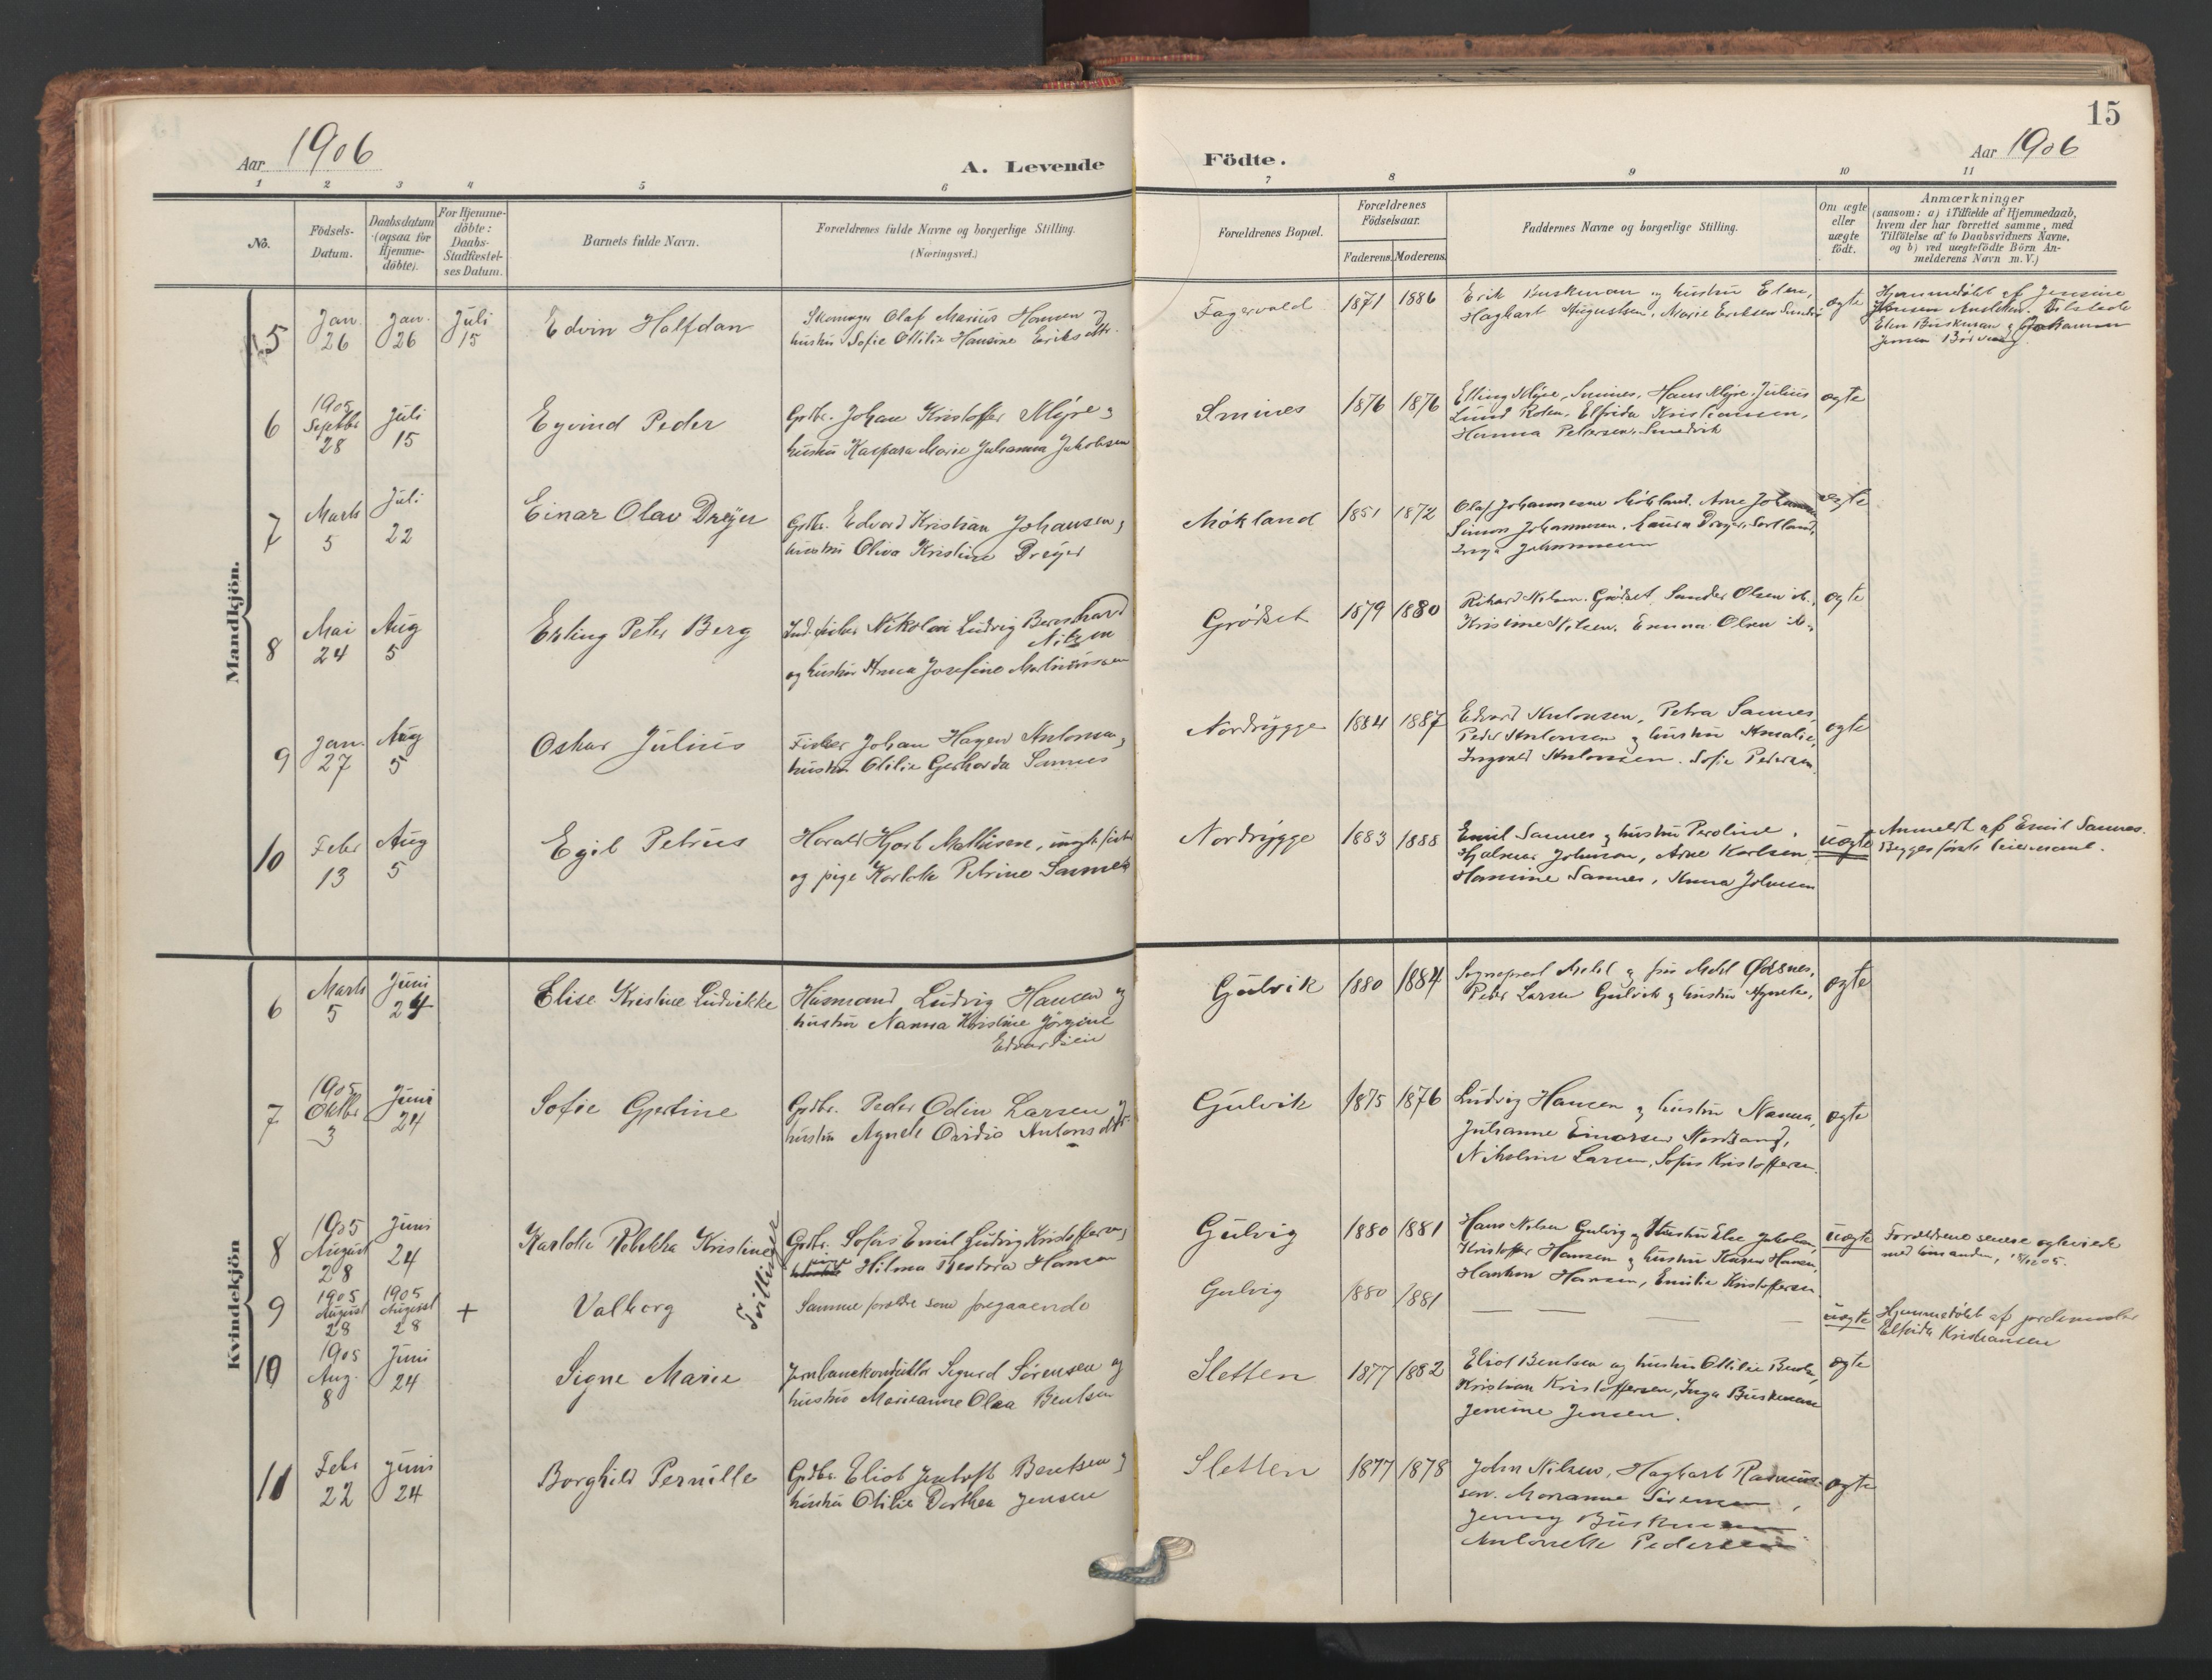 15
Aar 1906
A. Levende Födte.
Aar 1906
1 2 3 4 5 6 7 8 9 10 11
No.
Födsels-
Datum.
Daabsdatum
(ogsaa for
Hjemme-
döbte).
For Hjemme-
döbte:
Daabs-
Stadfæstel-
ses Datum.
Barnets fulde Navn.
Forældrenes fulde Navne og borgerlige Stilling.
(Næringsvei.)
Forældrenes Bopæl.
Forældrenes
Födselsaar.
Faderens. Moderens.
Faddernes Navne og borgerlige Stilling.
Om ægte
eller
uægte
födt.
Anmærkninger
(saasom: a) i Tilfælde af Hjemmedaab,
hvem der har forrettet samme, med
Tilföielse af to Daabsvidners Navne,
og b) ved uægtefödte Börn An-
melderens Navn m. V.)
Mandkjön.
5
Jan. 26
Jan. 26
Juli 15
Edvin Halfdan
Skomager Olaf Marius Hansen og
hustru Sofie Ottilie Hansine Eriksdtr.
Fagervold
1871 1886
Erik Buskman og hustru Elen,
Hagbart Augustsen, Marie Eriksen
ægte
Hjemmedøbt af Jensine
Jensen Tilstede
Elen Buskman og Johannes
Jensen
6
1905 Septbr 28
Juli 15
Eyvind Peder
Grdbr. Johan Kristoffer Myre og
hustru Kaspara Marie Julianna Jakobsen
Smines
1876 1876
Elling Myre, Smines, Hans Myre, Julius
Lund Roten, Elfrida Kristiansen,
Hanna Pettersen, Smedvik
ægte
7
Marts 5
Juli 22
Einar Olav Dreyer
Grdbr. Edvard Kristian Johansen og
hustru Oliva Kristine Dreyer
Møkland
1851 1872
Olaf Johannesen Møkland, Arne
Simon Johannesen, Laura Dreyer, Sortland,
Inga Johannesen
ægte
8
Mai 24
Aug 5
Erling Peter Berg
Ind. fisker Nikolai Ludvig Bernhard
Nilsen
og hustru Anna Josefine Martinussen
Grødset
1879 1880
Rikard Nilsen, Grødset, Sander Olsen ib.,
Kristine Nilsen, Emma Olsen ib.
ægte
9
Jan. 27
Aug 5
Oskar Julius
Fisker Johan Hagen Antonsen og
hustru Otilie Gerharda Sannes
Nordrygge
1884 1887
Edvard Antonsen, Petra Sannes,
Peder Antonsen og hustru Amalie,
Ingvald Antonsen. Sofie Pedersen.
ægte
10
Febr 13
Aug 5
Egil Petrus
Harald Hjort Mathisen, ungk. fisker
og pige Karlote Petrine Sannes
Nordrygge
1883 1888
Emil Sannes og hustru Peroline,
Hjalmar Johnson, Arne Karlsen,
Hansine Sannes, Anna Johnsen
uægte
Anmeldt af Emil Sannes.
Begges første leiermaal.
Kvindekjön
6
Marts 5
Juni 24
Elise Kristine Ludvikke
Husmand Ludvig Hansen og
hustru Nanna Kristine Jørgine
Edvardsen
Gulvik
1880 1884
Sogneprest Mehl og fru Mehl Øksnes,
Peder Larsen Gulvik og hustru Agnete,
ægte
7
1905 Oktbr 3
Juni 24
Sofie Gjertine
Grdbr. Peder Odin Larsen og
hustru Agnete Ovidia Antonsdtr.
Gulvik
1875 1876
Ludvig Hansen og hustru Nanna,
Julianne Einarsen Nordsand,
Nikoline Larsen, Sofus Kristoffersen.
ægte
8
1905 August 28
Juni 24
Karlotte Rebekka Kristine
Tvillinger
Grdbr. Sofus Emil Ludvig Kristoffersen og
pige
Hilma Teodora Hansen
Gulvig
1880 1881
Hans Nilsen Gulvig og Hustru Else Jakobine,
Kristoffer Hansen og hustru Karen Hansen,
Haakon Hansen, Emilie Kristoffersen
uægte
Forældrene senere ægteviede
med hinanden, 18/12 05.
9
1905 August 28
1905 August 28
+
Valborg
Samme forældre som foregaaende
Gulvig
1880 1881
— —
uægte
Hjemmedøbt af jordemoder
Elfrida Kristiansen
10
1905 Aug. 8
Juni 24
Signe Marie
Jernbanekonduktør Sigurd Sörensen og
hustru Marieanne Olea Bentsen
Sletten
1877 1882
Eliot Bentsen og hustru Ottilie
Kristian Kristoffersen, Inga Buskman
Jensine Jensen.
ægte
11
Febr 22
Juni 24
Borghild Pernille
Grdbr. Eliot Jentoft Bentsen og
hustru Otilie Dorthea Jensen
Sletten
1877 1878
John Nilsen, Hagbart Rasmus-
sen. Marianne Sörensen,
Jenny Buskman
Antonette Pedersen
ægte